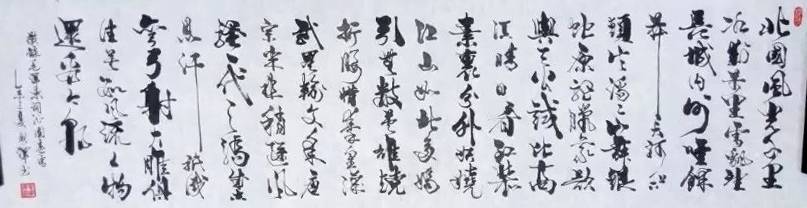 北國風光千里
冰封萬里雪飄望
長城内外惟餘
莽莽大河上下
頓失滔滔山舞銀
蛇原馳臘象欲
與天公試比高
須晴日看紅裝
素裹分外妖嬈
江山如此多嬌
引無數英雄競
折腰惜秦皇漢
武略輸文采唐
宗宋祖稍遜風
騷一代天驕成吉
思汗只識
彎弓射大雕俱
往矣數風流人物
還看今朝
錄毛澤東詞沁園春雪